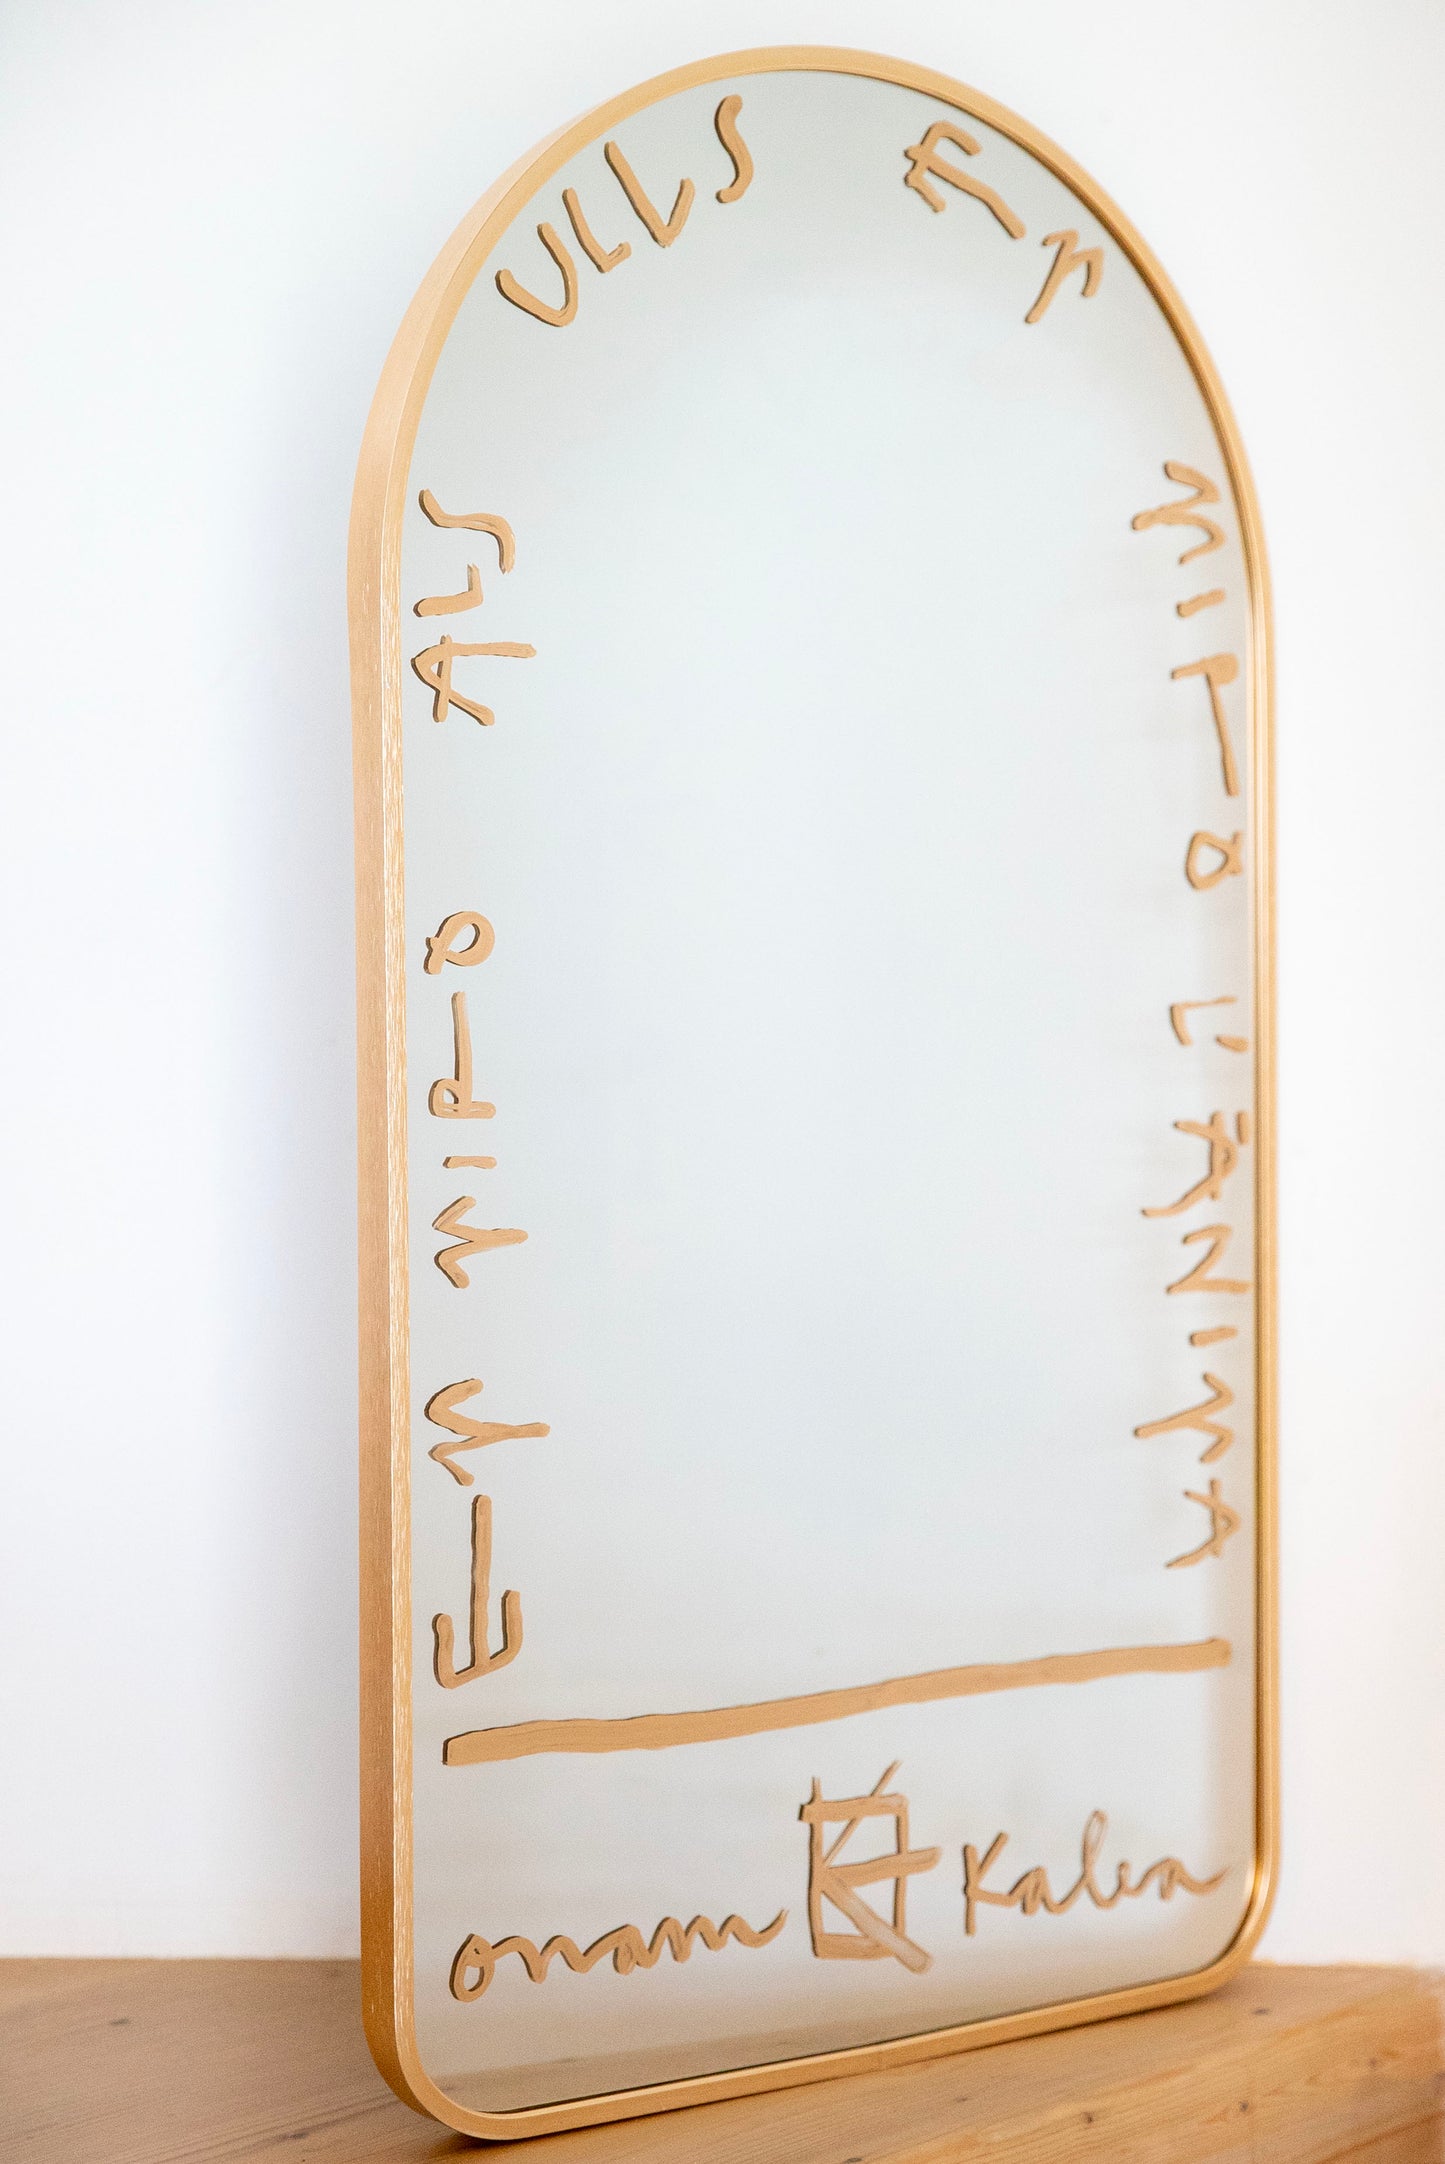 EM MIRO ALS
ULLS EM
MIRO L'ÀNIMA
onam Kalea